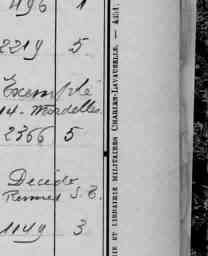 496 1
2219 5
Exempté
14 - Mordelles
2366 5
Décédé
Rennes S. E.
1149 3
IE ET LIBRAIRIE MILITAIRES CHARLES-LAVAUZELLE. —